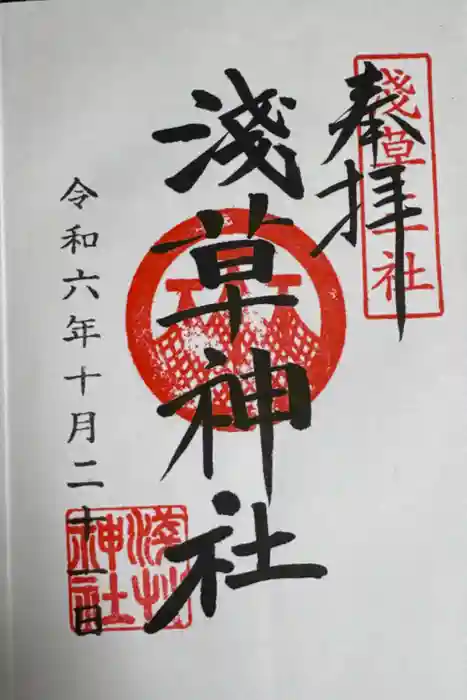 奉拝
淺草三社
淺草神社
令和六年十月二十一日
淺草神社